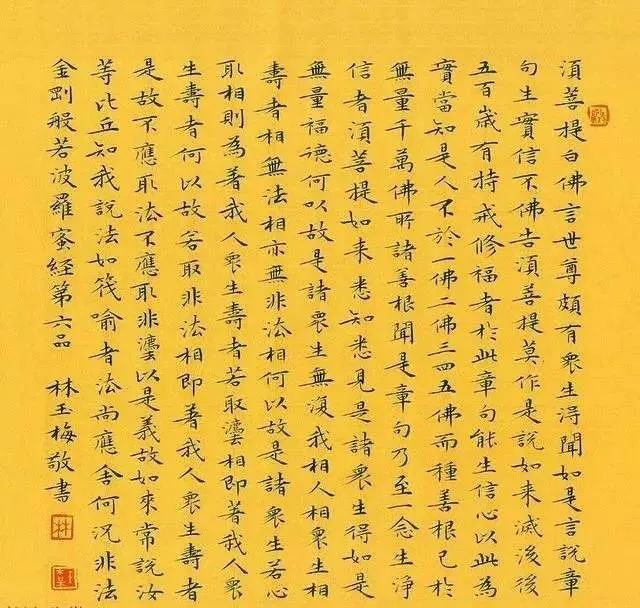 須菩提白佛言世尊頗有眾生得聞如是言說章
句生實信不佛告須菩提莫作是說如来滅後後
五百歲有持戒修福者於此章句能生信心以此為
實當知是人不於一佛二佛三四五佛而種善根已於
無量千萬佛所諸善根聞是章句乃至一念生淨
信者須菩提如来悉知悉見是諸眾生得如是
無量福德何以故是諸眾生無復我相人相眾生相
壽者相無法相亦無非法相何以故是諸眾生若心
取相則為著我人眾生壽者若取灋相即著我人眾
生壽者何以故若取非法相即著我人眾生壽者
是故不應取法不應取非灋以是義故如来常說汝
等比丘知我說法如筏喻者法尚應舍何況非法
金剛般若波羅蜜經第六品 林玉梅敬書